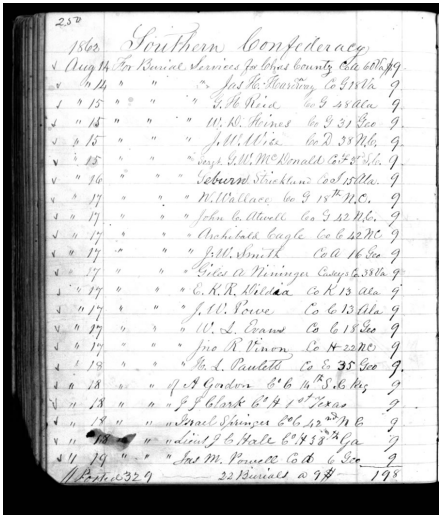 250
1862 Southern Confederacy
Aug 14 For Burial Services for Chas County Co A 60 Va $9.
" 14 " " " Jas H. Co G 18 Va 9.
" 15 " " " G. H. Reid Co G 48 Ala 9.
" 15 " " " W. D. Hines Co G 31 Geo 9
" 15 " " " J. W. Wise Co D 38 N.C. 9.
" 15 " " " G. W. McDonald Co F S.C. 9.
" 16 " " " Seburn Strickland Co I 15 Ala. 9
" 17 " " " W. Wallace Co G 18th N.C. 9
" 17 " " " John C. Atwell Co G 42 N.C. 9
" 17 " " " Archibald Cagle Co C 42 NC 9
" 17 " " " J. W. Smith Co A 16 Geo 9
" 17 " " " Giles A Nininger Co 28 Va 9
" 17 " " " E. K. R. Co K 13 Ala 9
" 17 " " " J. W. Powe Co C 13 Ala 9
" 17 " " " W. L. Evans Co C 18 Geo 9
" 17 " " " Jno R Vinon Co H 22 NC 9
" 18 " " " H. L. Paulett Co E 35 Geo 9.
" 18 " " " of A Gordon Co C 14th S.C. Reg 9
" 18 " " " J J Clark Co H 1st Texas 9
" 18 " " " Israel Springer Co C 42nd N C 9
" 18 " " " Lieut J C Hale Co H 38th Ga 9
" 19 " " " Jas M. Powell Co 6 Geo 9
Posted 329 22 Burials a 9$ 198